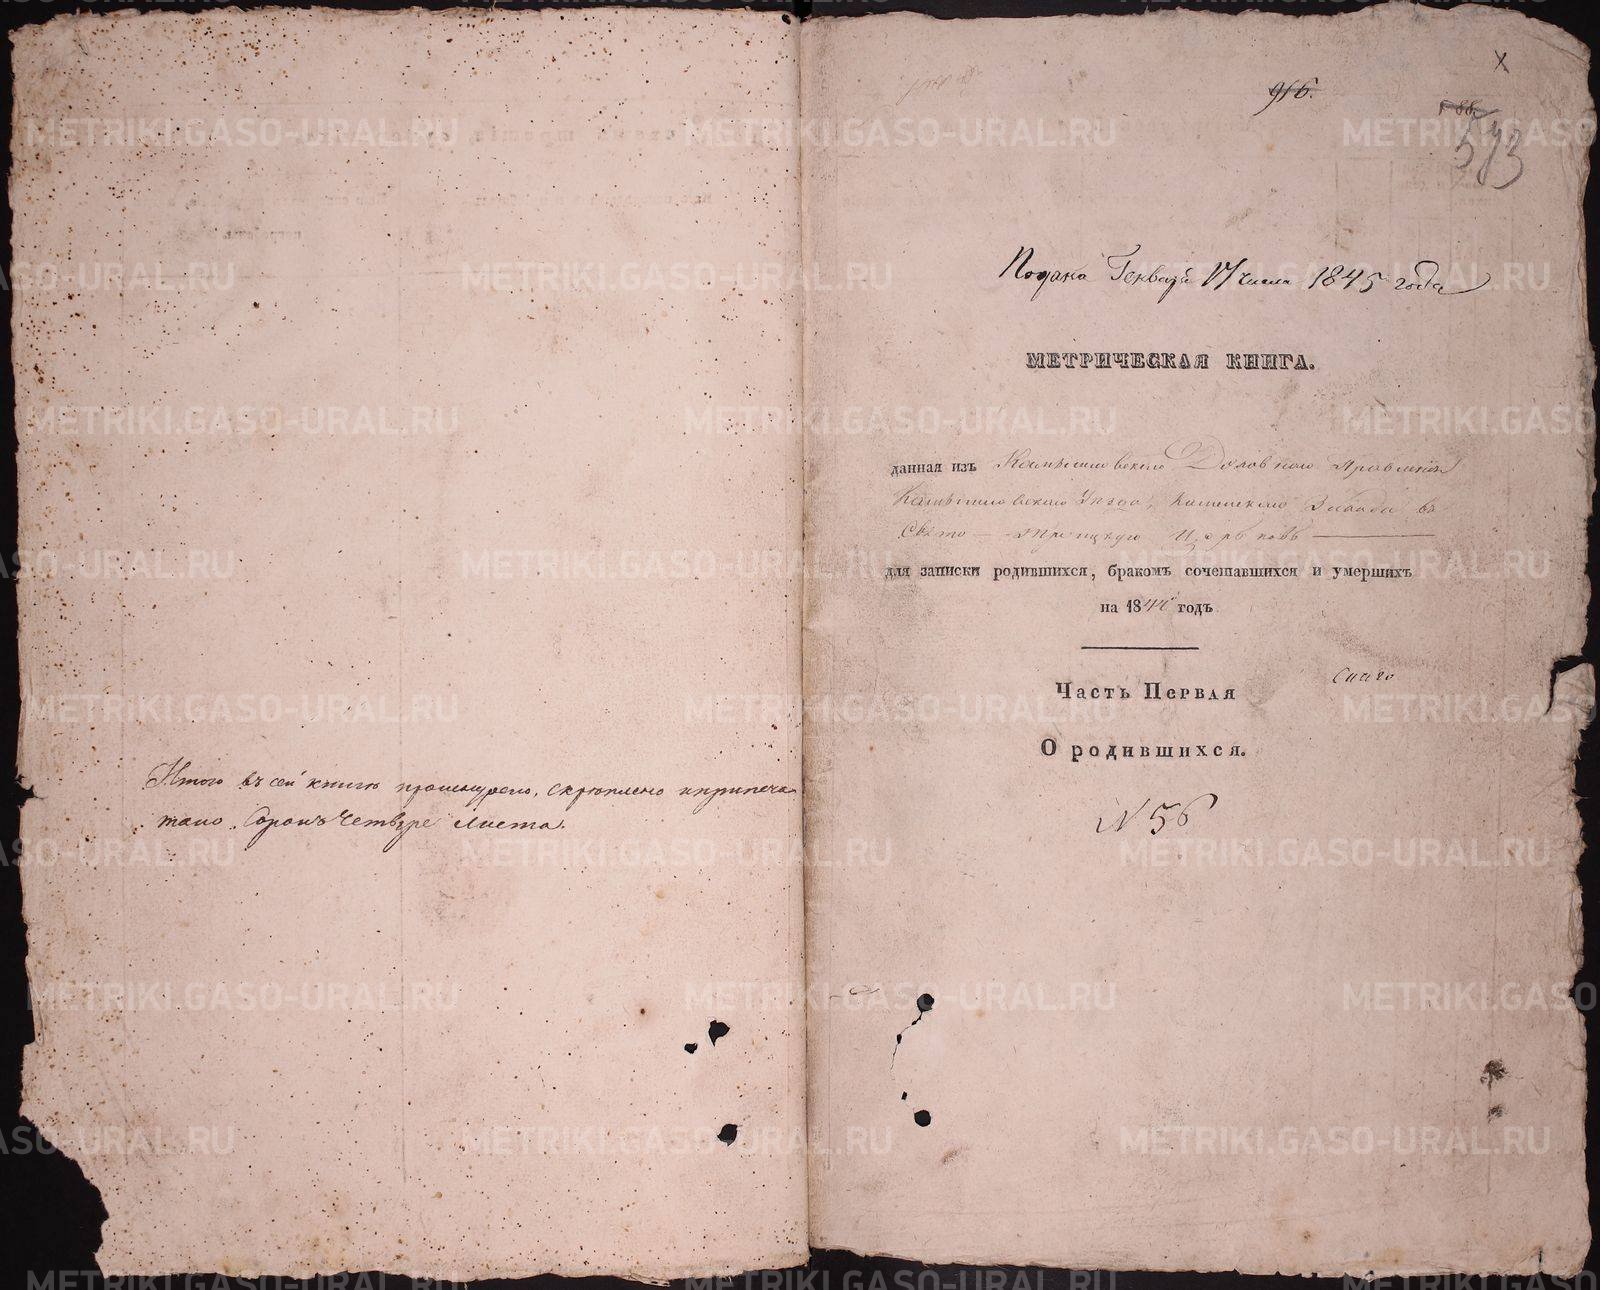 Итого въ сей книгѣ прошнурено, скрѣплено и припеча-
тано Сорокъ Четыре Листа.
916.
88
573
Подана Генваря 17 числа 1845 года
МЕТРИЧЕСКАЯ КНИГА.
данная изъ Камышловскаго Духовнаго Правленія
Камышловскаго Уѣзда, Каменскаго Завода въ
Свято-Троицкую Церковь
для записки родившихся, бракомъ сочетавшихся и умершихъ
на 1844 годъ
Часть Первая
О родившихся.
N 56
METRIKI.GASO-URAL.RU